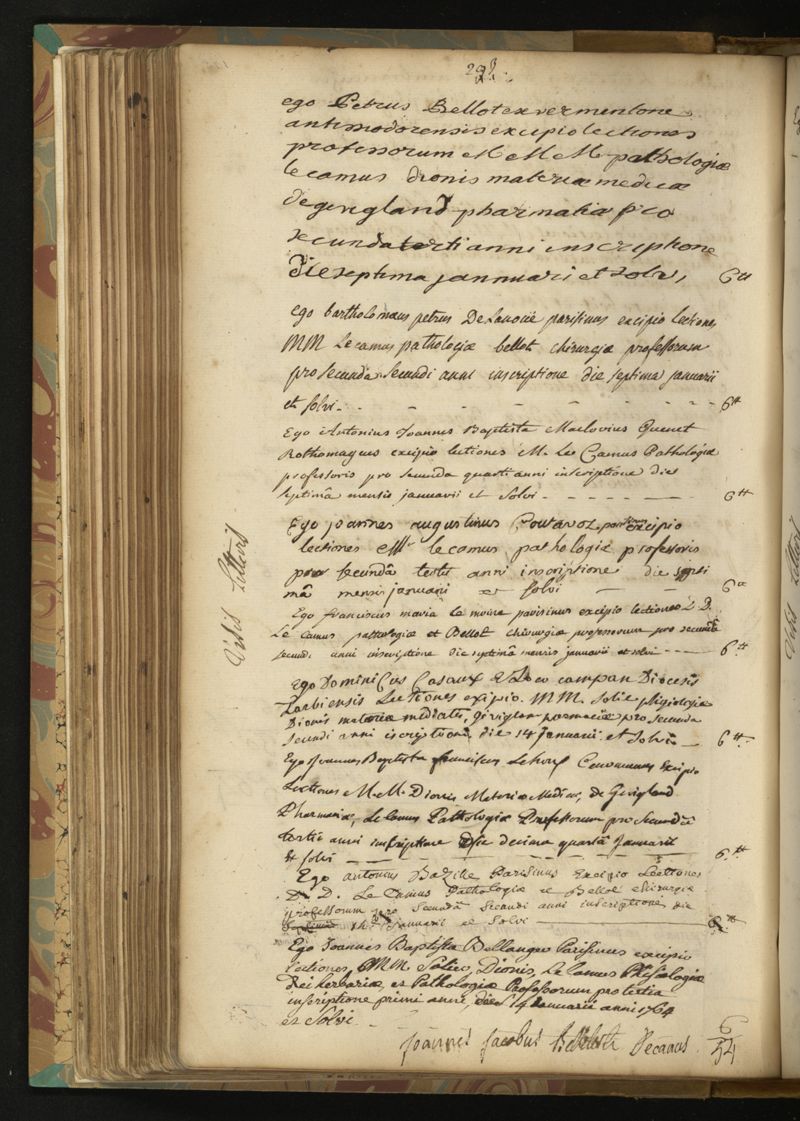 ego Petrus Bellot ex vermentone
antissiodorensis excipio lectiones
professorum M M M pathologiæ
le camus dionis materiæ medicæ
de gevigland pharmatiæ pro
secunda tertii anni inscriptione
die septima jannuari et solvi, 6tt
ego bartholomæus petrus De Lanoüe parisinus excipio lectiones
MM Le camus pathologiæ bellot chirurgiæ professorum
pro secunda secundi anni inscriptione die septima januarii
et solvi - - - - - - - - 6tt
Ego Antonius Joannes Baptista Maclovius Quenet
Rothomagus excipio lectiones M. Le Camus Pathologiæ
professoris pro secunda quarti anni inscriptione die
septimâ mensis januarii et solvi - - - - - 6tt
Ego joannes augustinus Coutavoz parisinus excipio
lectiones Mri le camus pathologiæ professoris
pro secundâ tertii anni inscriptione die septi
mâ mensis januarii et solvi - - 6tt
Ego franciscus maria le moine parisinus excipio lectiones D D.
Le Camus pathologiæ et Bellot chirurgiæ professorum pro secundâ
secundi anni inscriptione die septimâ mensis januarii et solvi - - - - 6tt
Visis Litteris
Ego DominiCus Casaux E Loco campan Diocesis
Tarbiensis Lectiones exipio. MM. Solie phigiologiæ
Dionis materiæ medicæ, Gevigland parmaciæ pro secunda
secundi anni iscriptione, die 14 Januarii et Solvi - 6tt
Ego Joannes Baptista franciscus Cenomanus Excipio
Lectiones M.M. Dionis Materiæ Medicæ, de Gevigland
Pharmaciæ, Le Camus Pathologiæ Professorum pro Secundâ
tertii anni inscriptione Die decima quartâ Januarii
et solvi - - - - - - - - 6tt
Ego antonius Bazile Parisinus Excipio Lectiones
D. D. Le Camus Pathologiæ et Bellot chirurgiæ
professorum pro Secundâ Secundi anni inscriptione, die
14â januarii et Solvi - - - - 6tt
Ego Joannes Baptista Bellanger Parisinus excipio
Lectiones MM Solier, Dionis, Le Camus Phisiologiæ
Rei herbariæ, et Pathologiæ Professorum pro tertia
inscriptione primi anni, die 14 Januarii anni 1764
et Solvi - 6
Joannes Jacobus Belleteste Decanus 54